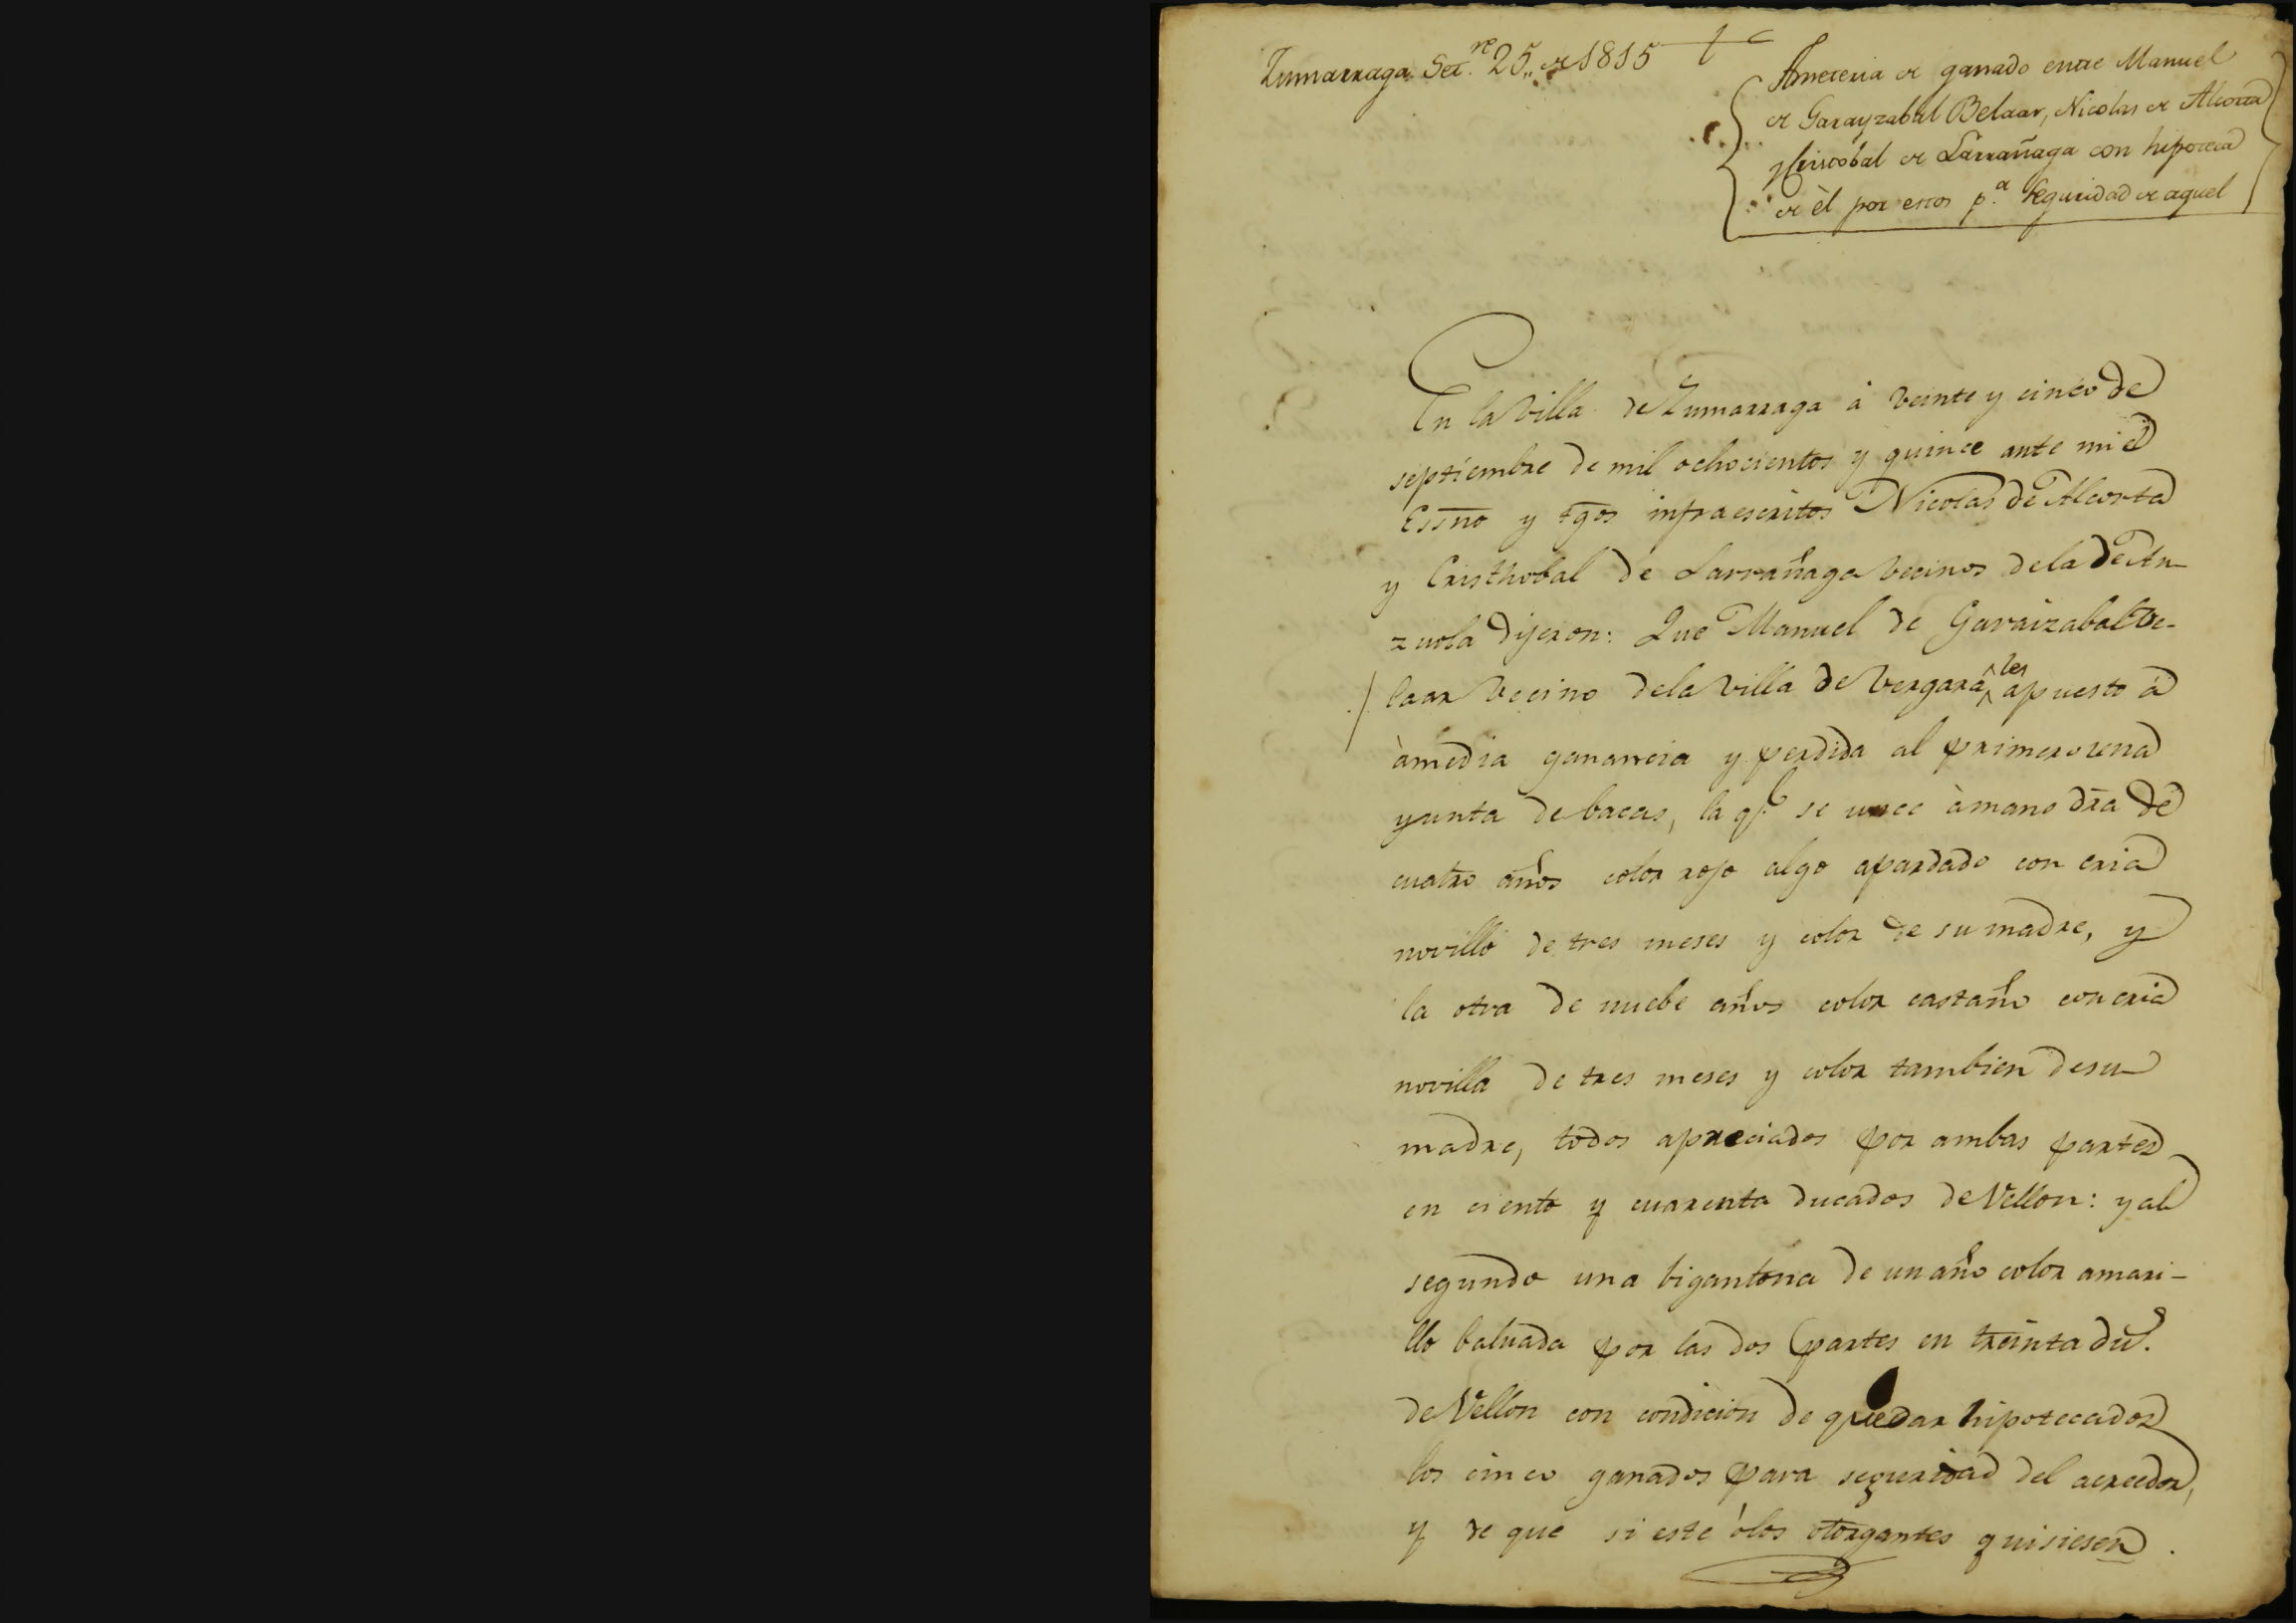 Zumarraga Set.re 25,, de 1815
Ameteria de ganado entre Manuel
de Garayzabal Belaar, Nicolas de Alcorta
y Cristobal de Larrañaga con hipoteca
de èl por estos p.a Seguridad de aquel
En la Villa de Zumarraga à veinte y cinco de
septiembre de mil ochocientos y quince ante mi el
Essno y tgos infraescritos Nicolas de Alcorta
y Cristhobal de Larrañaga vecinos dela de An-
zuola dijeron: Que Manuel de Garaizabal Be-
laar vecino dela Villa de Vergara les apuesto à
àmedia ganancia y perdida al primero una
yunta de bacas, la ql se unce àmano dra de
cuatro años color rojo algo apardado con cria
novillo de tres meses y color de su madre, y
la otra de nuebe años color castaño con cria
novilla de tres meses y color tambien desu
madre, todos apreciados por ambas partes
en ciento y cuarenta ducados de Vellon: y al
segundo una bigantona de un año color amari-
llo baluada por las dos partes en treinta du.s
de Vellon con condicion de quedar hipotecados
los cinco ganados para seguridad del acreedor,
y de que si este òlos otorgantes quisiesen